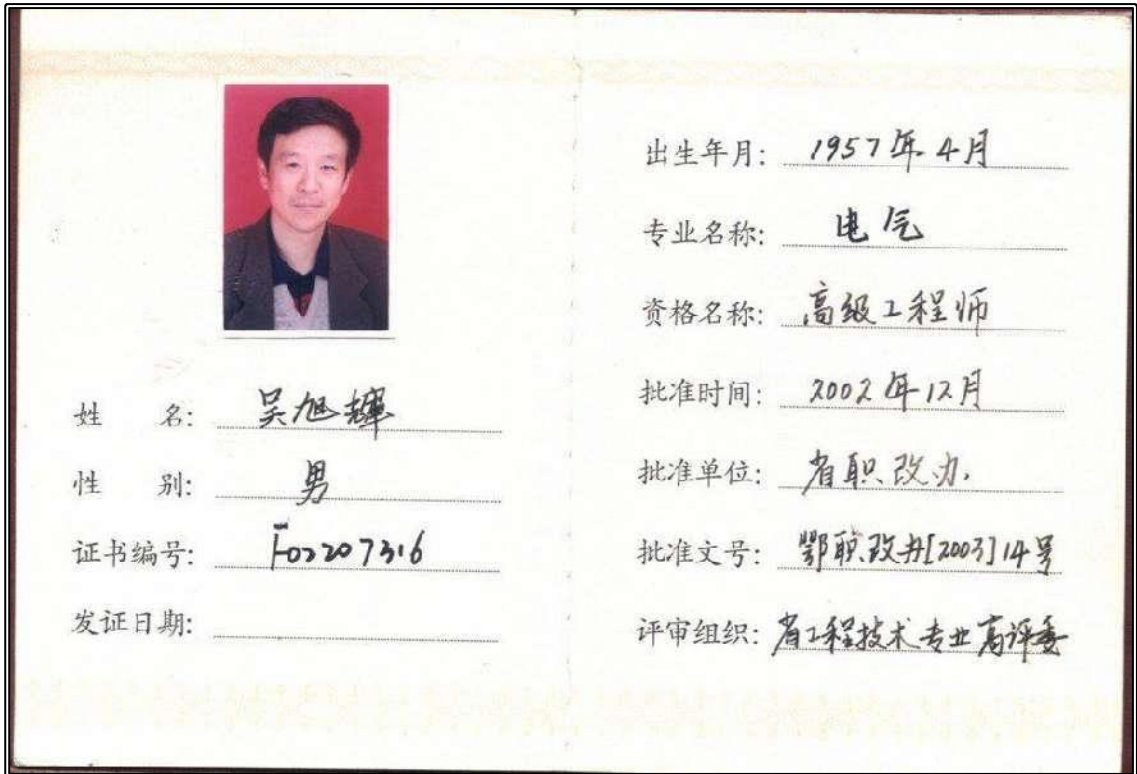 姓 名: 吴旭辉
性 别: 男
证书编号: F02207316
发证日期:
出生年月: 1957年4月
专业名称: 电气
资格名称: 高级工程师
批准时间: 2002年12月
批准单位: 省职改办
批准文号: 鄂职改办[2003]14号
评审组织: 省工程技术专业高评委